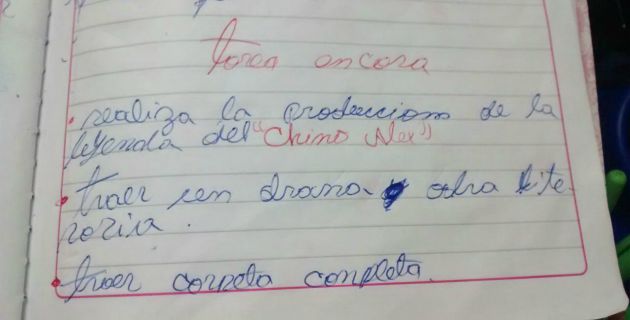 Torea en casa
• realiza la produccion de la
leyenda del "Chino Alex"
• traer un drama y obra lite
roria.
• traer carpeta completa.